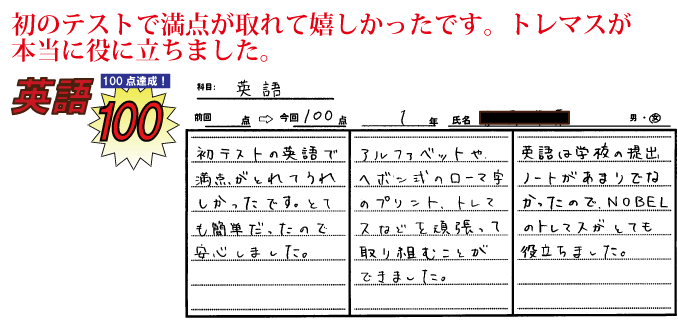 初のテストで満点が取れて嬉しかったです。トレマスが
本当に役に立ちました。
英語
100点達成！
100
科目: 英語
前回 点 ⇨ 今回 100 点 1 年 氏名 男・女
初テストの英語で
満点がとれてうれ
しかったです。とて
も簡単だったので
安心しました。
アルファベットや、
ヘボン式のローマ字
のプリント、トレマ
スなどを頑張って
取り組むことが
できました。
英語は学校の提出
ノートがあまりでな
かったので、NOBEL
のトレマスがとても
役立ちました。